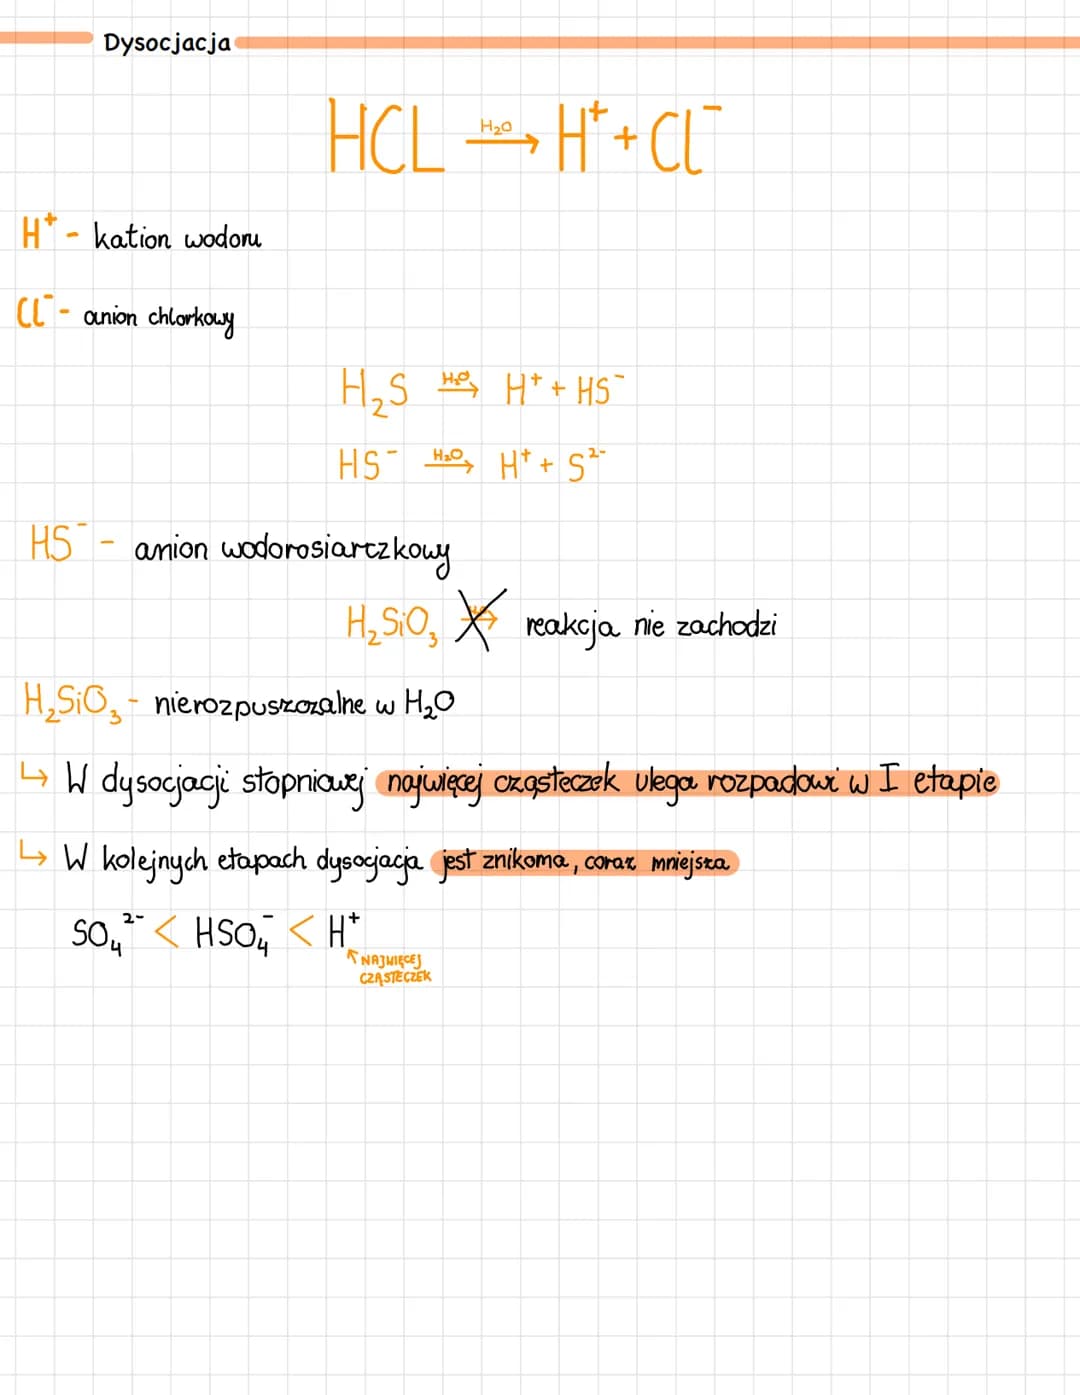 Dysocjacja
HCL H₂O→ H⁺ + Cl⁻
H⁺ - kation wodoru
Cl⁻ - anion chlorkowy
H₂S H₂O→ H⁺ + HS⁻
HS⁻ H₂O→ H⁺ + S²⁻
HS⁻ - anion wodorosiarczkowy
H₂SiO₃ → reakcja nie zachodzi
H₂SiO₃ - nierozpuszczalne w H₂O
↳ W dysocjacji stopniowej najwięcej cząsteczek ulega rozpadowi w I etapie
↳ W kolejnych etapach dysocjacja jest znikoma, coraz mniejsza
SO₄²⁻ < HSO₄⁻ < H⁺
↖ NAJWIĘCEJ
CZĄSTECZEK